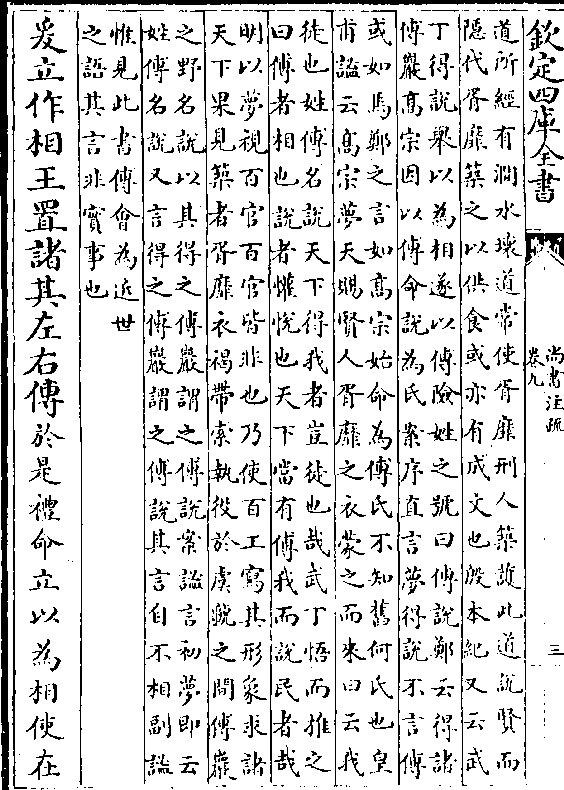 欽定四庫全書
尚書注疏
卷九
三
道所經有澗水壞道常使胥靡刑人築護此道説賢而
隠代胥靡築之以供食或亦有成文也殷本紀又云武
丁得説舉以為相遂以傅險姓之號曰傅説鄭云得諸
傅巖髙宗因以傅命説為氏案序直言夢得説不言傅
或如馬鄭之言如髙宗始命為傅氏不知舊何氏也皇
甫謐云髙宗夢天賜賢人胥靡之衣蒙之而來曰云我
徒也姓傅名説天下得我者豈徒也哉武丁悟而推之
曰傅者相也説者懽悦也天下當有傅我而説民者哉
明以夢視百官百官皆非也乃使百工寫其形象求諸
天下果見築者胥靡衣褐帶索執役於虞虢之間傅巖
之野名説以其得之傅巖謂之傅説案謐言初夢即云
姓傅名説又言得之傅巖謂之傅説其言自不相副謐
惟見此書傅會為近世
之語其言非實事也
爰立作相王置諸其左右傳於是禮命立以為相使在